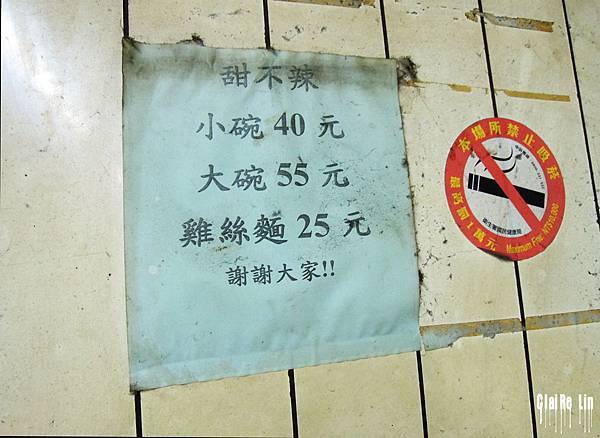 甜不辣
小碗 40 元
大碗 55 元
雞絲麵 25 元
謝謝大家!!
本場所禁止吸菸
最高罰1萬元
Maximum Fine NT$10,000
ClaiRe Lin